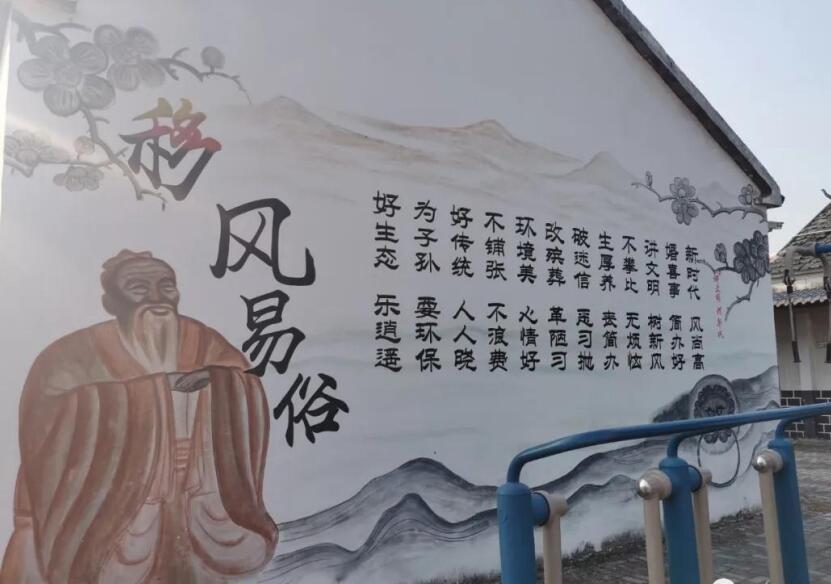 移风易俗
新时代 风尚高
婚喜事 简办好
讲文明 树新风
不攀比 无烦恼
生厚养 丧简办
破迷信 恶习抛
改殡葬 革陋习
环境美 心情好
不铺张 不浪费
好传统 人人晓
为子孙 要环保
好生态 乐逍遥